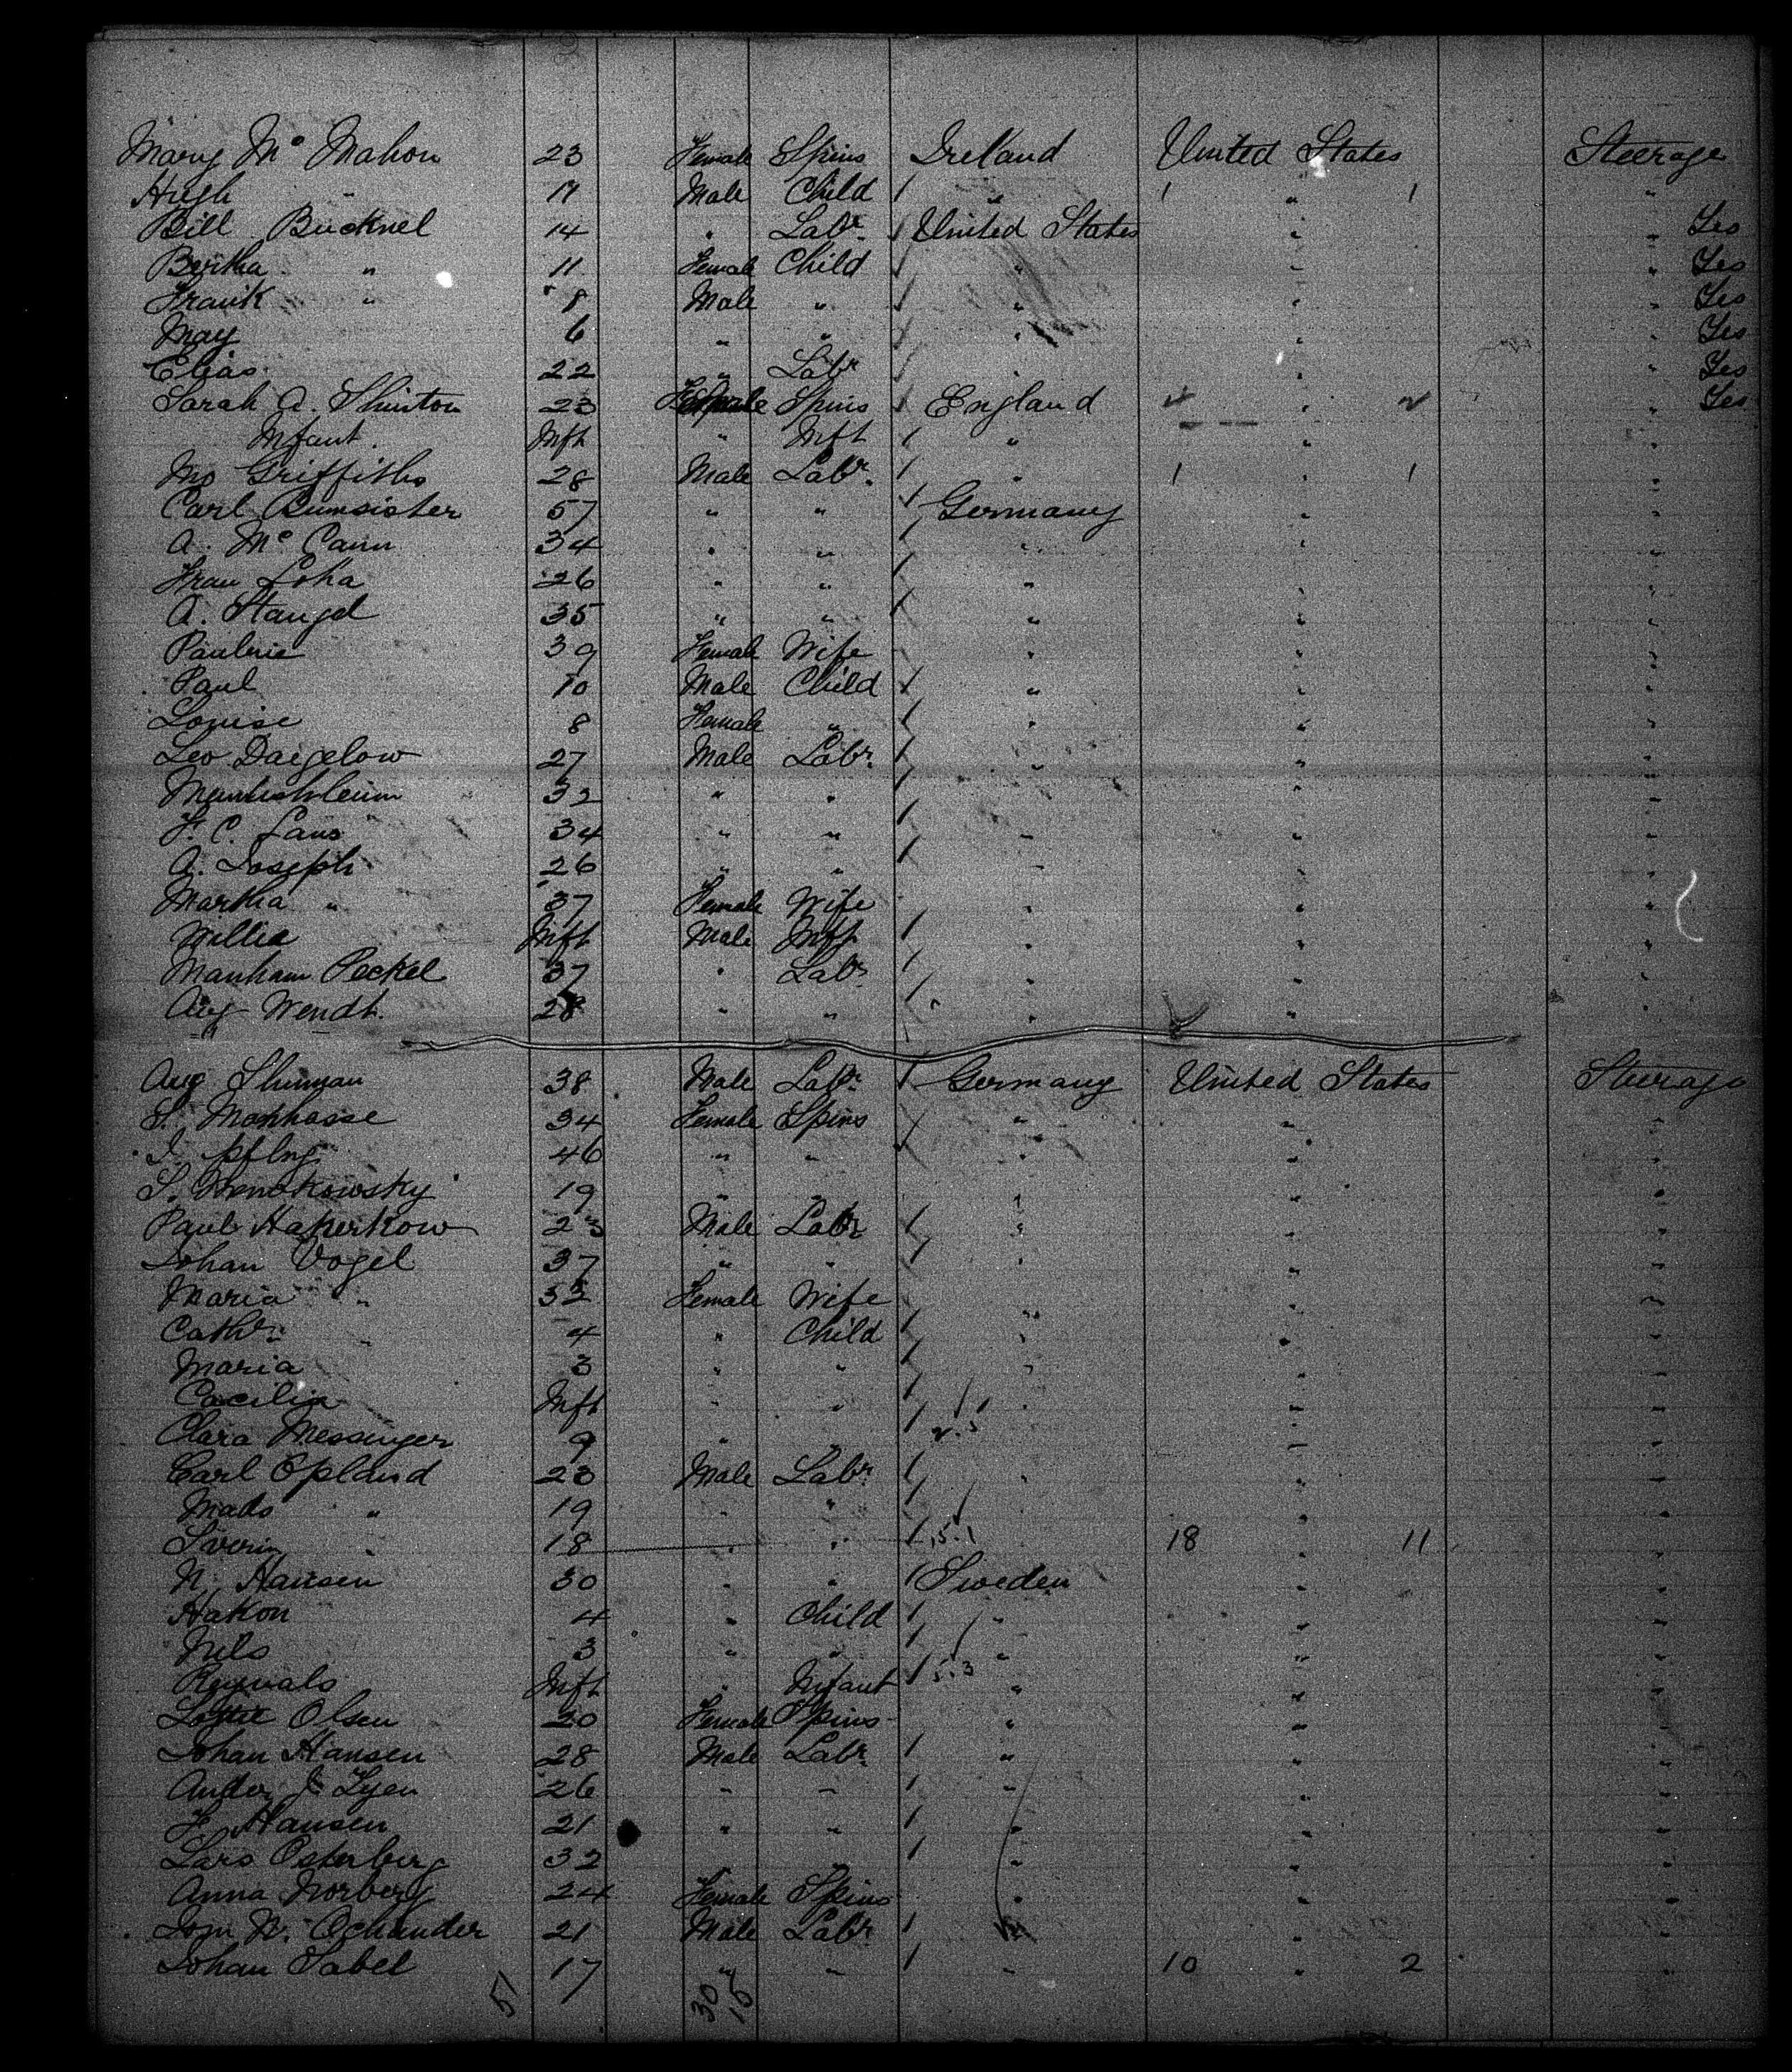 Mary Mc Mahon 23 Female Spins Ireland United States Steerage
Hugh " 11 Male Child " " "
Bill Bucknel 14 " Labr. United States " " Yes
Bertha " 11 Female Child " " " Yes
Frank " 8 Male " " " " Yes
May 6 " " " " " Yes
Elias 22 " Labr " " " Yes
Sarah A. Shinton 23 Female Spins England " " Yes
Infant Inft " Inft " " "
Jno Griffiths 28 Male Labr. " 1 " 1 "
Carl Bumsister 57 " " Germany " "
A. Mc Cann 34 " " " " "
Frau Loha 26 " " " " "
A. Stangel 35 " " " " "
Pauline 39 Female Wife " " "
Paul 10 Male Child " " "
Louise 8 Female " " " "
Leo Daigelow 27 Male Labr. " " "
32 " " " " "
F. C. Laus 34 " " " " "
A. Joseph 26 " " " " "
Martha " 37 Female Wife " " "
Willie Inft Male Inft " " "
Manham Peckel 37 " Labr " " "
Aug Wendt. 28 " " " " "
Aug Shuman 38 Male Labr. Germany United States Steerage
S. Manhasse 34 Female Spins " " "
I. 46 " " " " "
S. 19 " " " " "
Paul Haperkow 23 Male Labr " " "
Johan Vogel 37 " " " " "
Maria " Female Wife " " "
Cathr. " 4 " Child " " "
Maria 3 " " " " "
Cacilia Inft " " " " "
Clara Messinger 9 " " " "
Carl Opland 23 Male Labr. " " "
Mads " 19 " " " "
Sverin " 18 " " 18 " 11 "
N. Hansen 30 " " Sweden " "
Hakon 4 " Child " " "
Nils 3 " " " " "
Inft " Infant " " "
Lottie Olsen 20 Female Spins " " "
Johan Hansen 28 Male Labr. " " "
Ander J. Lyen 26 " " " " "
F. Hansen 21 " " " " "
Lars Osterberg 32 " " " "
Anna Norberg 24 Female Spins " " "
N. Ochander 21 Male Labr. " "
Johan Sabel 17 " " " 10 " 2 "
51 30 15